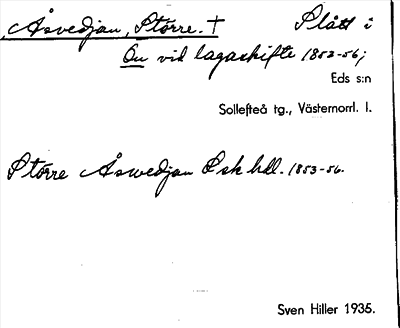 Åsvedjan, Större. † Plått i
Ön vid lagaskifte 1853-56;
Eds s:n
Sollefteå tg., Västernorrl. l.
Större Åswedjan Ö sk hdl. 1853-56.
Sven Hiller 1935.